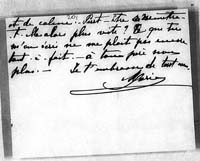 et de calme. Peut-être se
t Moulor plus vite? Ce que tu
m'en écris ne me plait pas encore
tout-à-fait - à tout prix nous
plus. — Je t'embrasse de tout
Marie